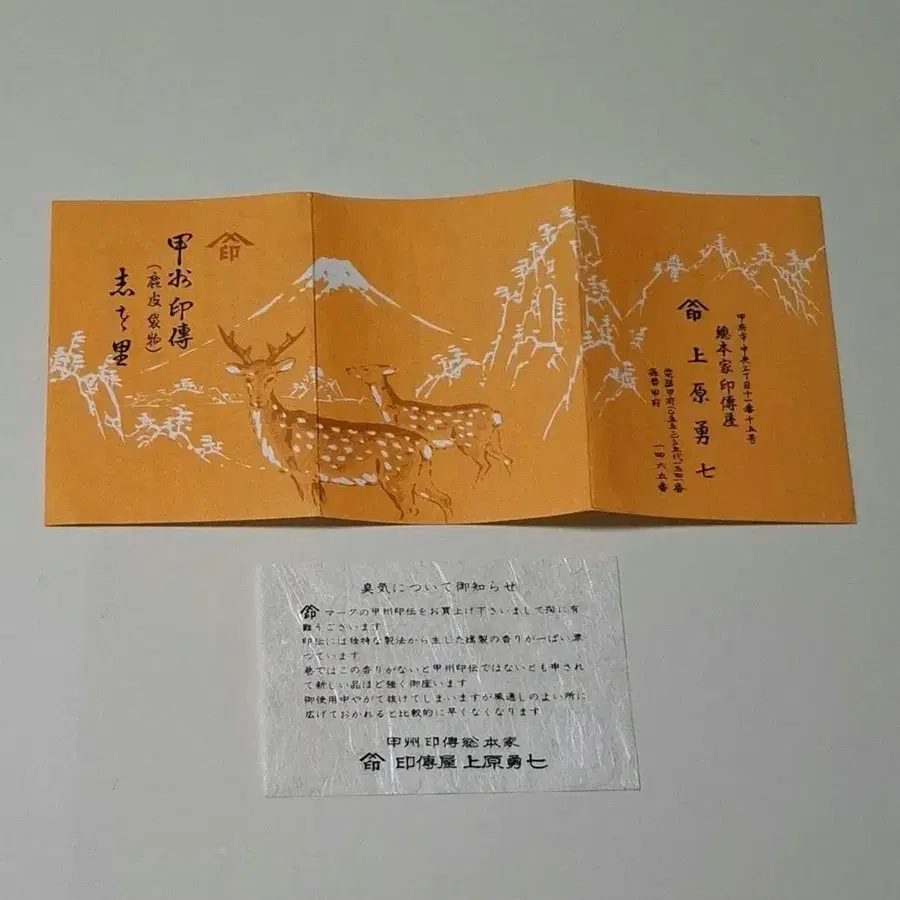 印
甲州印傳
(鹿皮袋物)
志を里
甲府市中央三丁目十一番十五号
總本家印傳屋
印 上原勇七
電話甲府
振替甲府 一四六五番
臭気について御知らせ
印 マークの甲州印伝をお買上げ下さいまして洵に有
難うございます
印伝には独特な製法から生した燻製の香りが一ぱい漂
つています
巷ではこの香りがないと甲州印伝ではないとも申され
て新しい品ほど強く御座います
御使用中やがて抜けてしまいますが風通しのよい所に
広げておかれると比較的に早くなくなります
甲州印傳総本家
印 印傳屋上原勇七